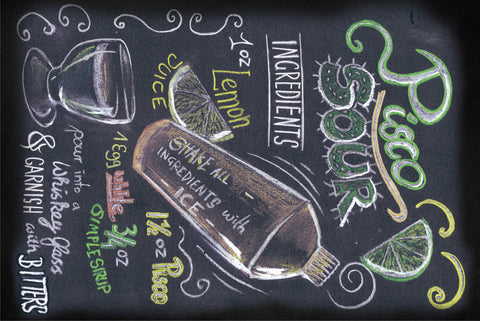 Pisco
SOUR
INGREDIENTS
1 oz Lemon
JUICE
SHAKE ALL
INGREDIENTS with
ICE
1½ oz Pisco
¾ oz
SIMPLE SIRUP
1 Egg white
pour into a
Whiskey Glass
& GARNISH with BITTERS